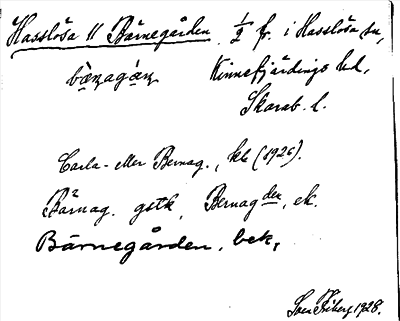 Hasslösa 11 Bärnegården 1/2 fr. i Hasslösa sn,
bæ̀ṇagáṇ Kinnefjärdings hd.
Skarab. l.
Carla- eller Bernag., kb (1926).
Bärnag. gstk, Bernagden, ek.
Bärnegården, bek,
Friberg 1928.